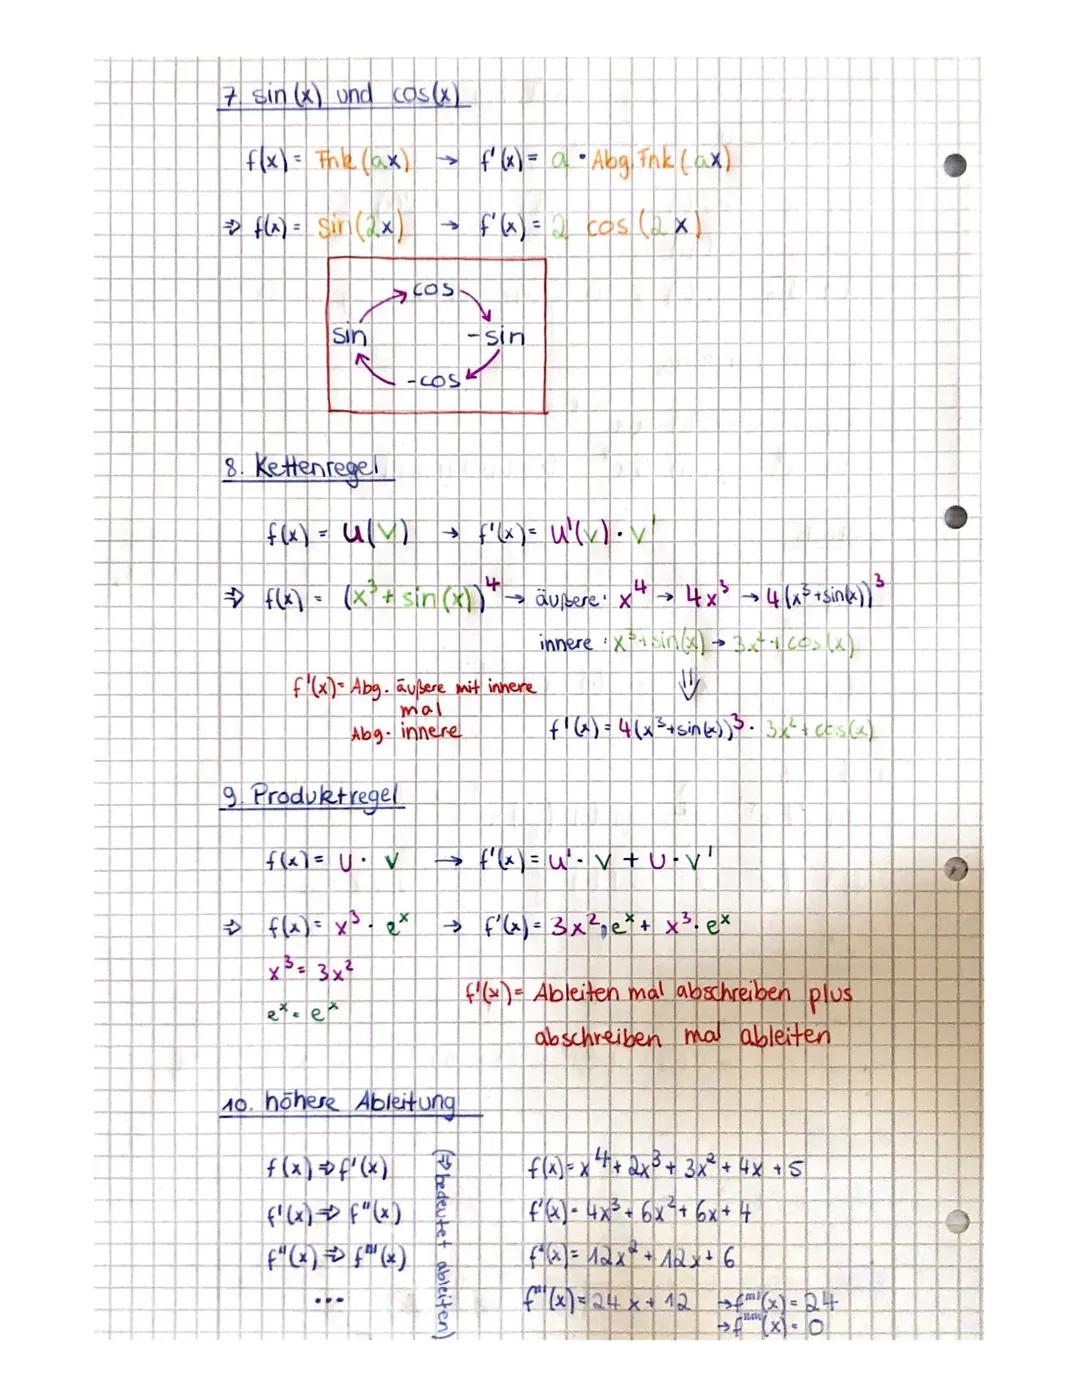 7. sin(x) und cos(x)
f(x) = Fnk(ax) → f'(x) = a · Abg. Fnk(ax)
⇒ f(x) = sin(2x) → f'(x) = 2 cos(2x)
cos
sin -sin
-cos
8. Kettenregel
f(x) = u(v) → f'(x) = u'(v) · v'
⇒ f(x) = (x³ + sin(x))⁴ → äußere: x⁴ → 4x³ → 4(x³+sin(x))³
innere: x³+sin(x) → 3x²+cos(x)
⇓
f'(x) = Abg. äußere mit innere
mal
Abg. innere
f'(x) = 4(x³+sin(x))³ · 3x²+cos(x)
9. Produktregel
f(x) = u · v → f'(x) = u' · v + u · v'
⇒ f(x) = x³ · eˣ → f'(x) = 3x² · eˣ + x³ · eˣ
x³ = 3x²
eˣ = eˣ
f'(x) = Ableiten mal abschreiben plus
abschreiben mal ableiten
10. höhere Ableitung
f(x) ⇒ f'(x)
f'(x) ⇒ f''(x)
f''(x) ⇒ f'''(x)
...
(⇒ bedeutet ableiten)
f(x) = x⁴ + 2x³ + 3x² + 4x + 5
f'(x) = 4x³ + 6x² + 6x + 4
f''(x) = 12x² + 12x + 6
f'''(x) = 24x + 12 → f''''(x) = 24
→ f'''''(x) = 0